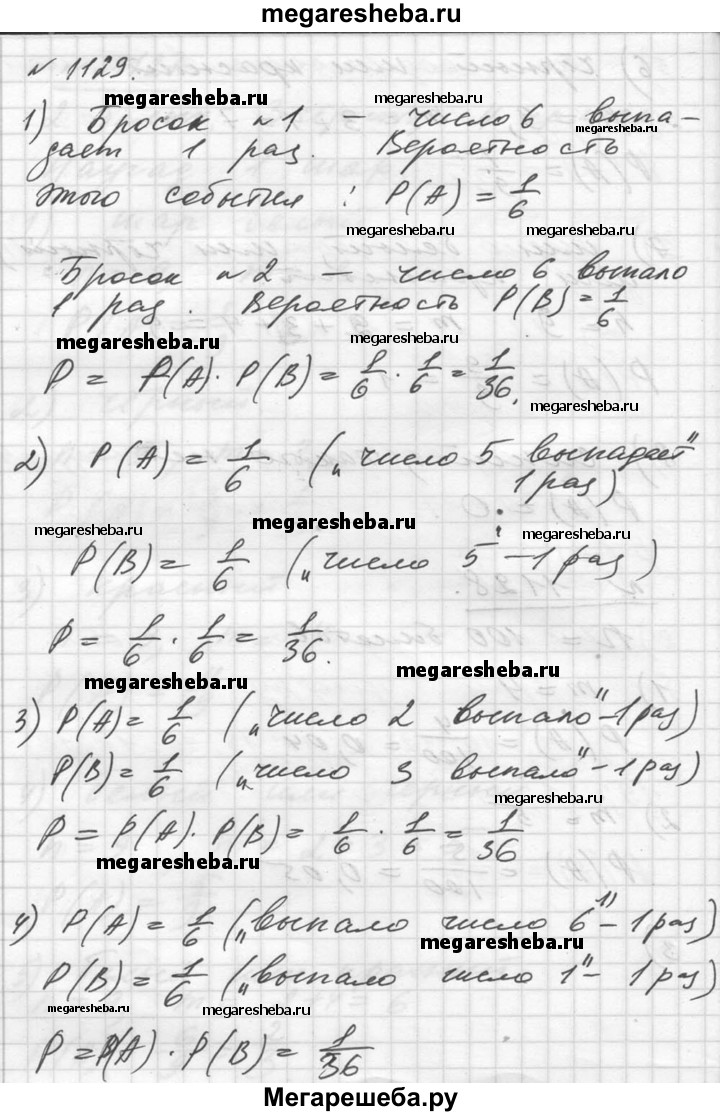 megaresheba.ru
№ 1129.
megaresheba.ru megaresheba.ru
1) Бросок №1 – число 6 выпа-
megaresheba.ru
дает 1 раз. Вероятность
этого события : P(A) = 1/6
megaresheba.ru megaresheba.ru
Бросок №2 – число 6 выпало
1 раз. Вероятность P(B) = 1/6
megaresheba.ru megaresheba.ru
P = P(A) · P(B) = 1/6 · 1/6 = 1/36.
megaresheba.ru
2) P(A) = 1/6 („число 5 выпадает"
1 раз)
megaresheba.ru megaresheba.ru megaresheba.ru
P(B) = 1/6 („число 5" – 1 раз)
P = 1/6 · 1/6 = 1/36.
megaresheba.ru megaresheba.ru
3) P(A) = 1/6 („число 2 выпало" – 1 раз)
P(B) = 1/6 („число 3 выпало" – 1 раз)
megaresheba.ru megaresheba.ru
P = P(A) · P(B) = 1/6 · 1/6 = 1/36
megaresheba.ru megaresheba.ru
4) P(A) = 1/6 („выпало число 6" – 1 раз)
megaresheba.ru
P(B) = 1/6 („выпало число 1" – 1 раз)
P = P(A) · P(B) = 1/36
Мегарешеба.ру